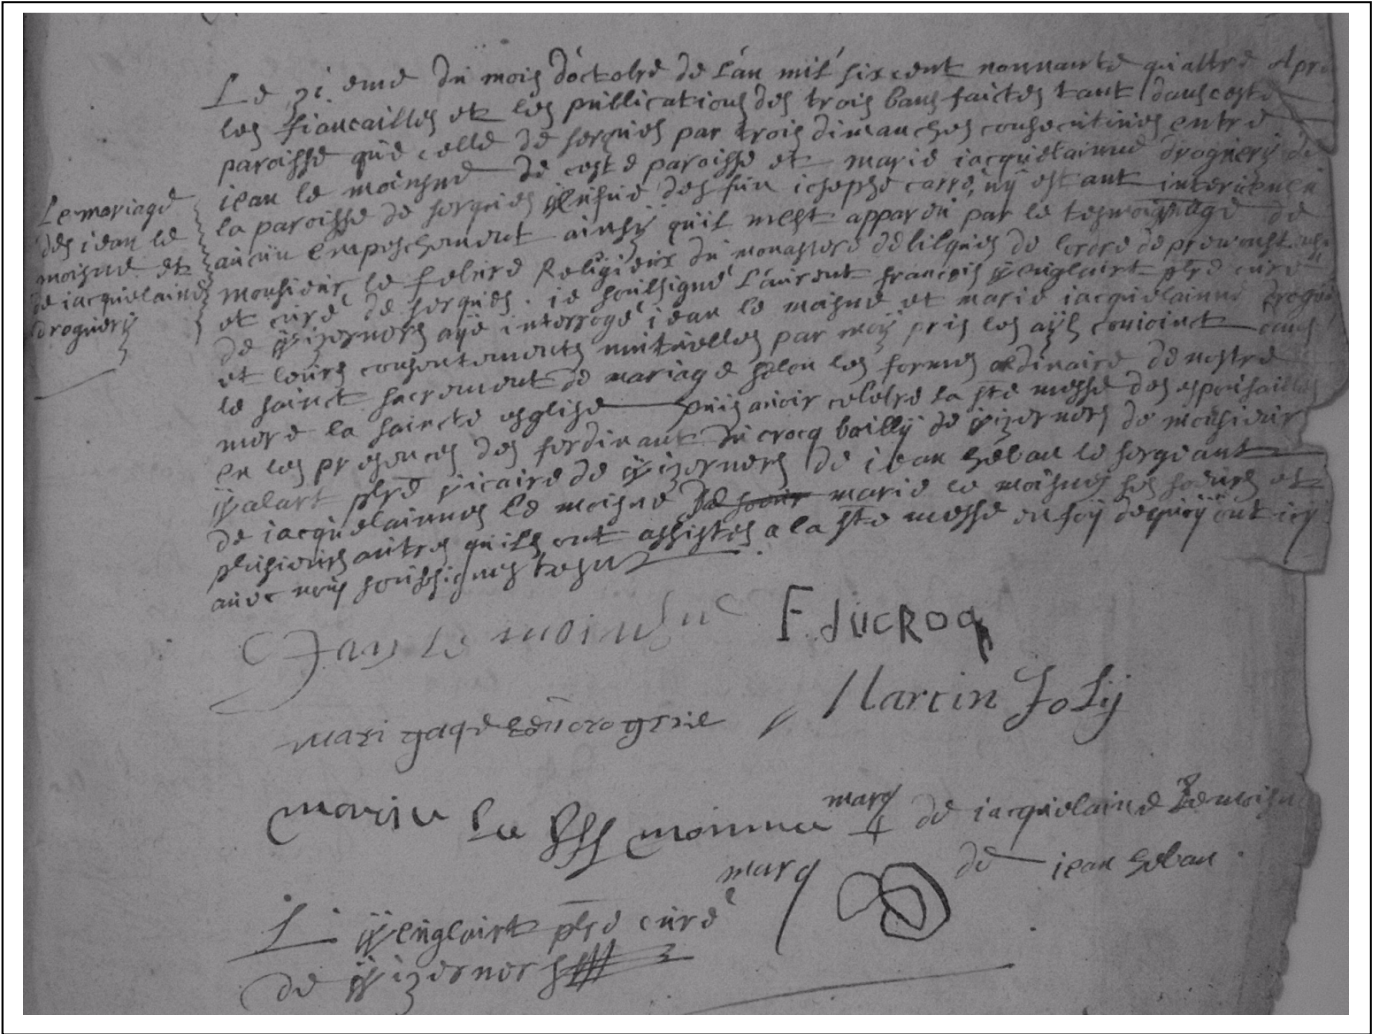 Le 31 eme du mois d'octobre de l'an mil six cent nonnante quattre apre
les fiancailles et les publications des trois bans faictes tant dans ceste
paroisse que celle de serques par trois dimanches consecutives entre
jean le moinsne de ceste paroisse et marie jacquelainne drognerij de
la paroisse de serques des fun josephe carré, nÿ estant intervenu
aucun empeschement ainsÿ quil mest apparu par le tesmoisnage de
monsieur le febure Religieux du monastere de lilques de lordre de premonst
et curé de serques. je soussigné Laurent francois Wenglairt pbre curé
de Wizernes aÿe interrogé jean le moisne et marie jacquelainne drogn
et leurs consentements mutuelles par moÿ pris les aÿs conjoinct
le sainct sacrement de mariage selon les formes ordinaire de nostre
mere la saincte esglise puis avoir celebré la ste messe des espousailles
en les presences des ferdinant du crocq baillÿ de Wizernes de monsieur
Walart pbre vicaire de Wizernes de jean heban le sergeant
de jacquelainnes le moisne marie le moisnes ses soeurs et
plusieurs autres quils ont assistes a la ste messe en foÿ de quoÿ ont icÿ
avec nous soussignes tesm
Le mariage
des jean le
moisne et
de jacquelaine
drognerij
Jan le moinsne
F. duCROq
Martin Jolij
mari gaqelenne drogerie
marie Le moinne
marq de jacquelaine Lemoisn
marq de jean heban
L Wenglairt pbre curé
de Wizernes